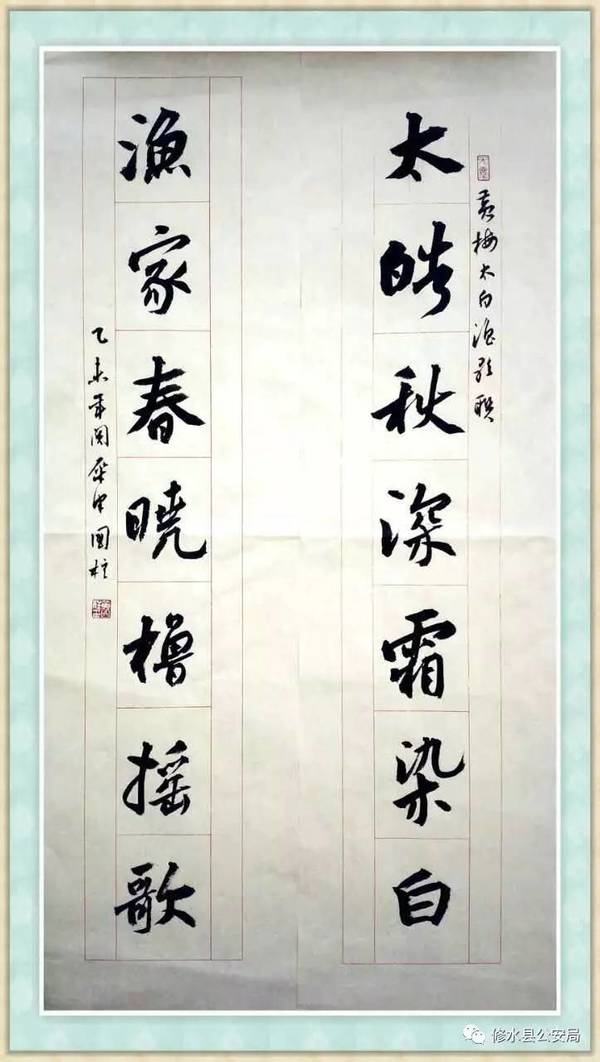 黄梅太白渔歌联
太皓秋深霜染白
渔家春晓橹摇歌
乙未年阅 国柱
修水县公安局